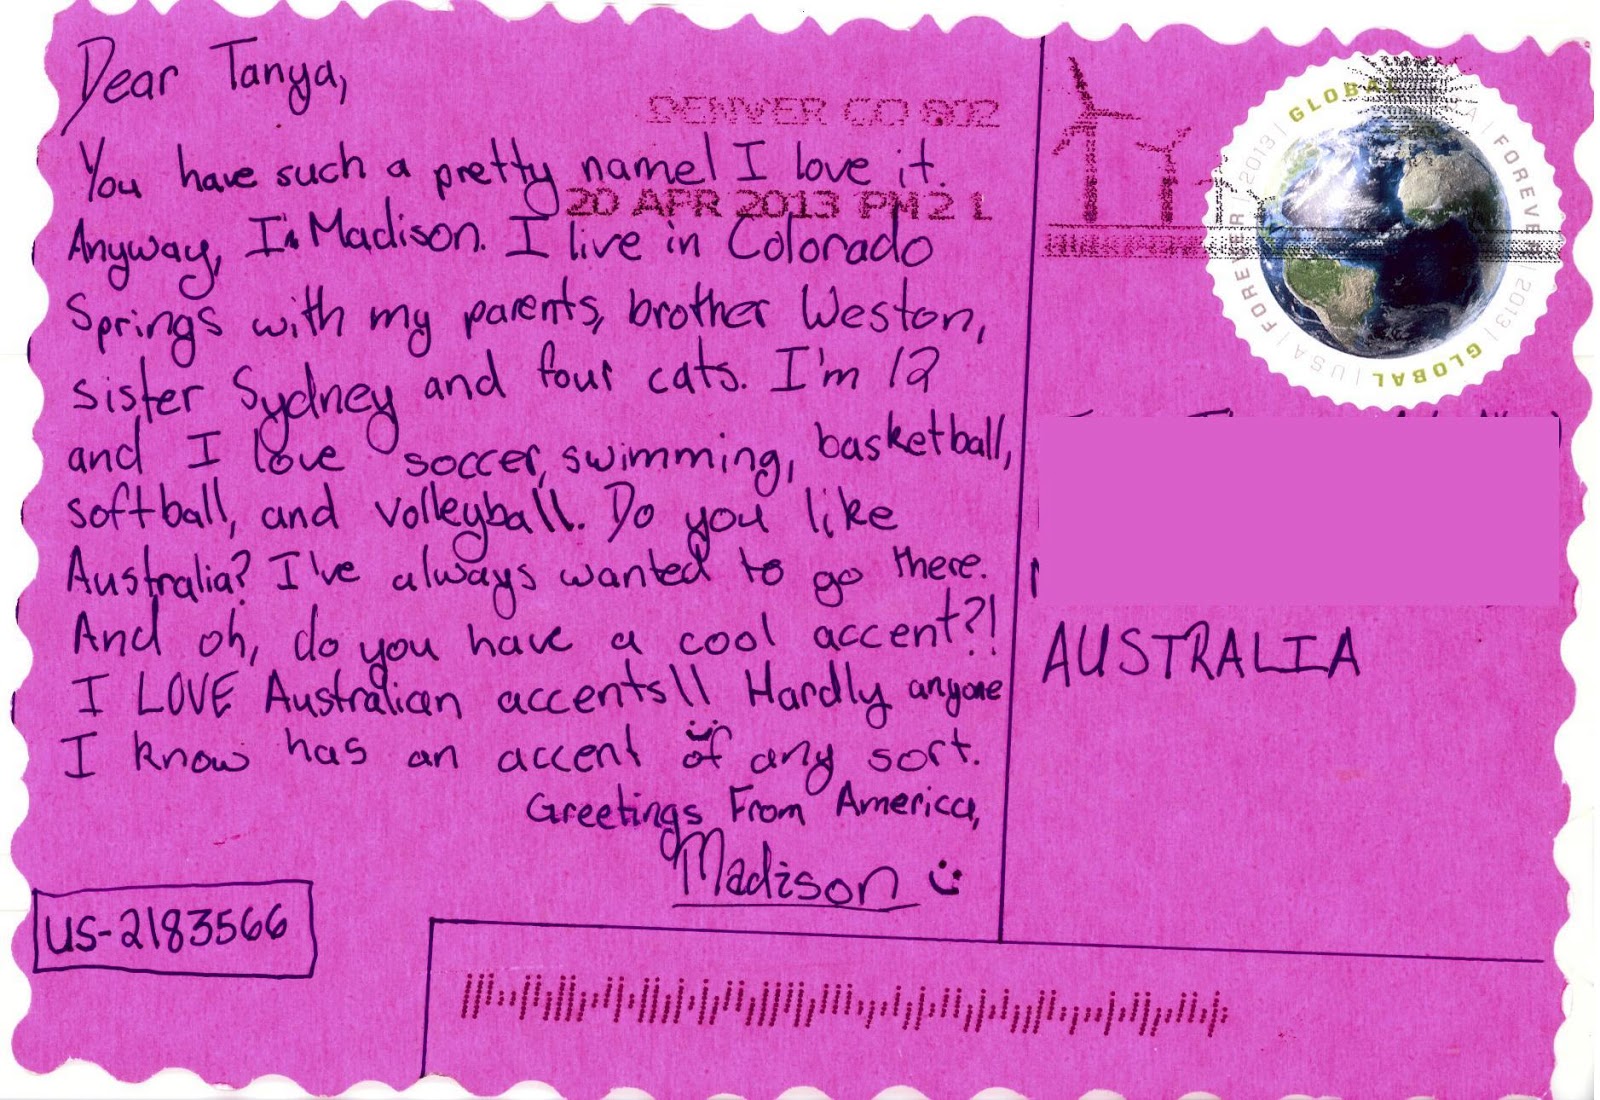 Dear Tanya,
DENVER CO 802
You have such a pretty name! I love it.
20 APR 2013 PM 2 L
Anyway, I'm Madison. I live in Colorado
Springs with my parents, brother Weston,
sister Sydney and four cats. I'm 12
and I love soccer, swimming, basketball,
softball, and volleyball. Do you like
Australia? I've always wanted to go there.
And oh, do you have a cool accent?!
I LOVE Australian accents!! Hardly anyone
I know has an accent of any sort.
Greetings From America,
Madison
US-2183566
GLOBAL | USA | FOREVER | 2013 | GLOBAL | USA | FOREVER | 2013 |
AUSTRALIA